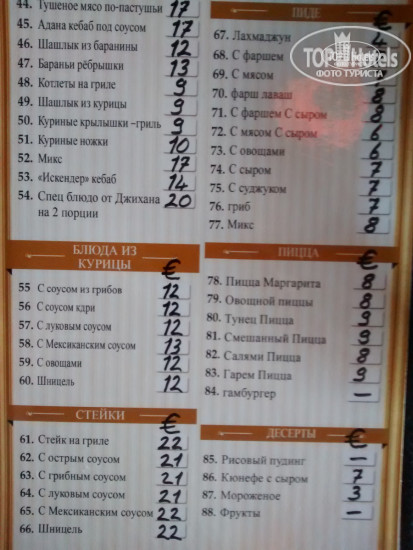 44. Тушеное мясо по-пастушьи 17
45. Адана кебаб под соусом 17
46. Шашлык из баранины 12
47. Бараньи рёбрышки 13
48. Котлеты на гриле 9
49. Шашлык из курицы 9
50. Куриные крылышки –гриль 9
51. Куриные ножки 10
52. Микс 17
53. «Искендер» кебаб 14
54. Спец блюдо от Джихана 20
на 2 порции
БЛЮДА ИЗ
КУРИЦЫ €
55 С соусом из грибов 12
56 С соусом кдри 12
57. С луковым соусом 12
58. С Мексиканским соусом 13
59. С овощами 12
60. Шницель 12
СТЕЙКИ €
61. Стейк на гриле 22
62. С острым соусом 21
63. С грибным соусом 21
64. С луковым соусом 21
65. С Мексиканским соусом 22
66. Шницель 22
ПИДЕ €
67. Лахмаджун 4
68. С фаршем
69. С мясом
70. фарш лаваш 8
71. С фаршем С сыром 8
72. С мясом С сыром 6
73. С овощами 6
74. С сыром 7
75. С суджуком 7
76. гриб 7
77. Микс 8
ПИЦЦА €
78. Пицца Маргарита 8
79. Овощной пиццы 8
80. Тунец Пицца 9
81. Смешанный Пицца 9
82. Салями Пицца 8
83. Гарем Пицца 9
84. гамбургер –
ДЕСЕРТЫ €
85. Рисовый пудинг –
86. Кюнефе с сыром 7
87. Мороженое 3
88. Фрукты –
TOPHotels
ФОТО ТУРИСТА